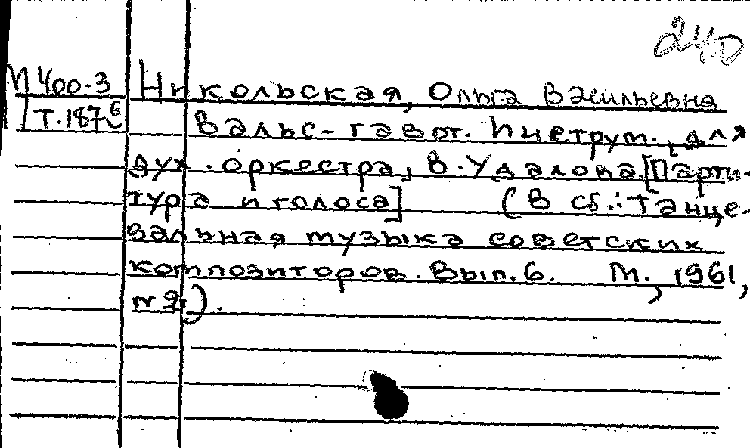 240
М400-3 Никольская, Ольга Васильевна
Т.187б Вальс-гавот. Инструм., для
дух. оркестра, В. Удалова [Парти-
тура и голоса] (в сб.: Танце-
вальная музыка советских
композиторов. Вып. 6. М., 1961,
№ 2).